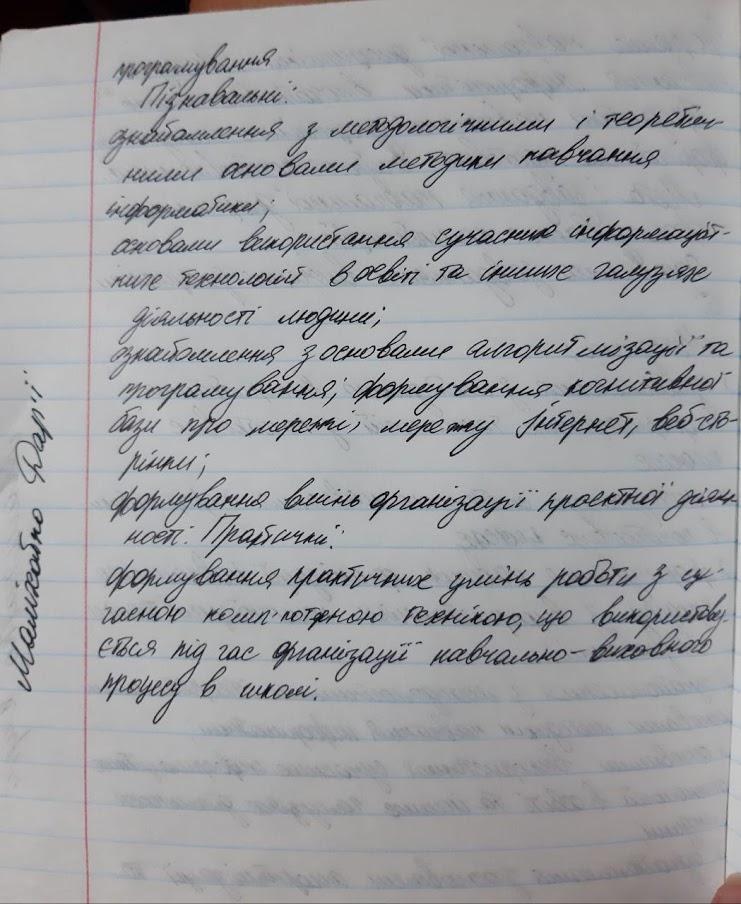 програмування
Пізнавальні:
ознайомлення з методологічними і теоретич-
ними основами методики навчання
інформатики;
основами використання сучасних інформацій-
них технологій в освіті та інших галузях
діяльності людини;
ознайомлення з основами алгоритмізації та
програмування; формування когнітивної
бази про мережі, мережу Інтернет, веб-сто-
рінки;
формування вмінь організації проєктної діяль-
ності. Практичні:
формування практичних умінь роботи з су-
часною комп'ютерною технікою, що використову-
ється під час організації навчально-виховного
процесу в школі.
Дар'ї